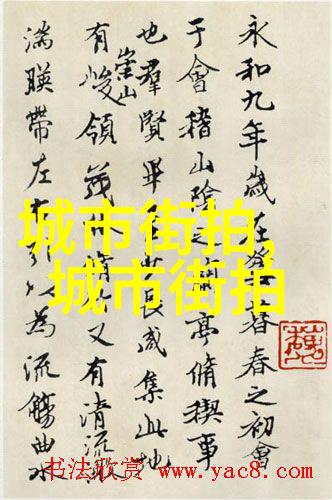 永和九年歲在暮春之初會
于會稽山陰之蘭亭脩稧事
也羣賢畢長咸集此地
有崇山峻領茂又有清流激
湍暎帶左引以為流觴曲水
城市街拍,
城市街拍
书法欣赏 www.yac8.com